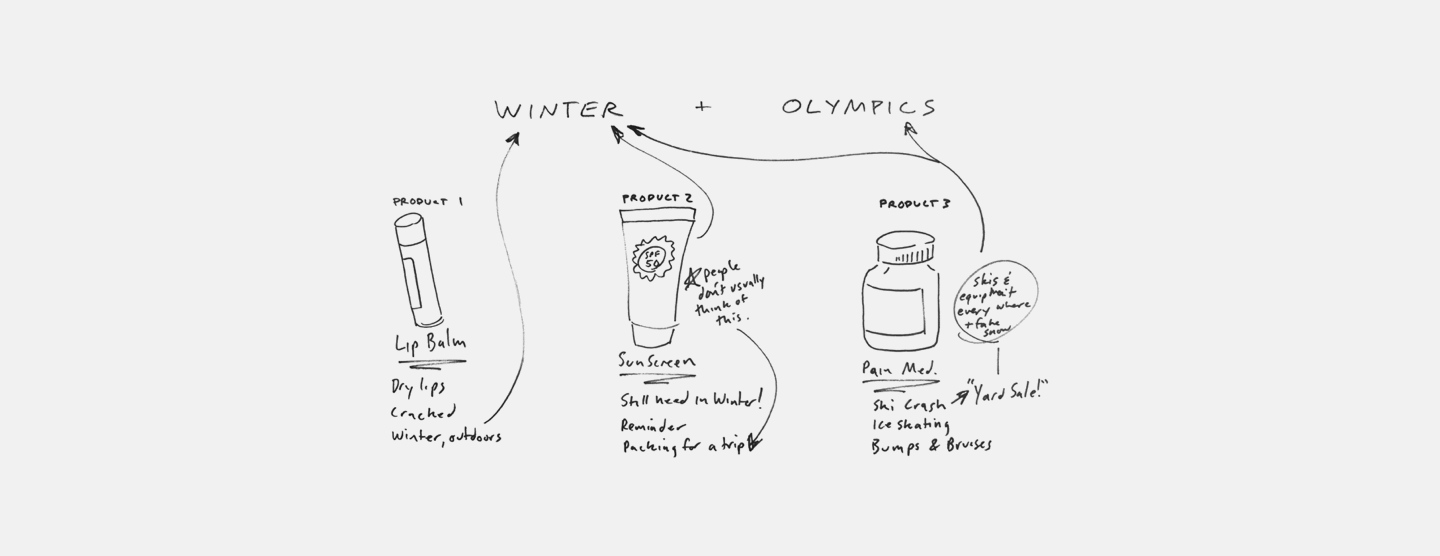 WINTER + OLYMPICS
PRODUCT 1
Lip Balm
Dry lips
Cracked
Winter, outdoors
PRODUCT 2
SPF
50
people
don't usually
think of
this.
Sunscreen
Still need in Winter!
Reminder
Packing for a trip
PRODUCT 3
skis &
equipment
every where
+ fake
snow
Pain Med.
"Yard Sale!"
Ski Crash
Ice skating
Bumps & Bruises